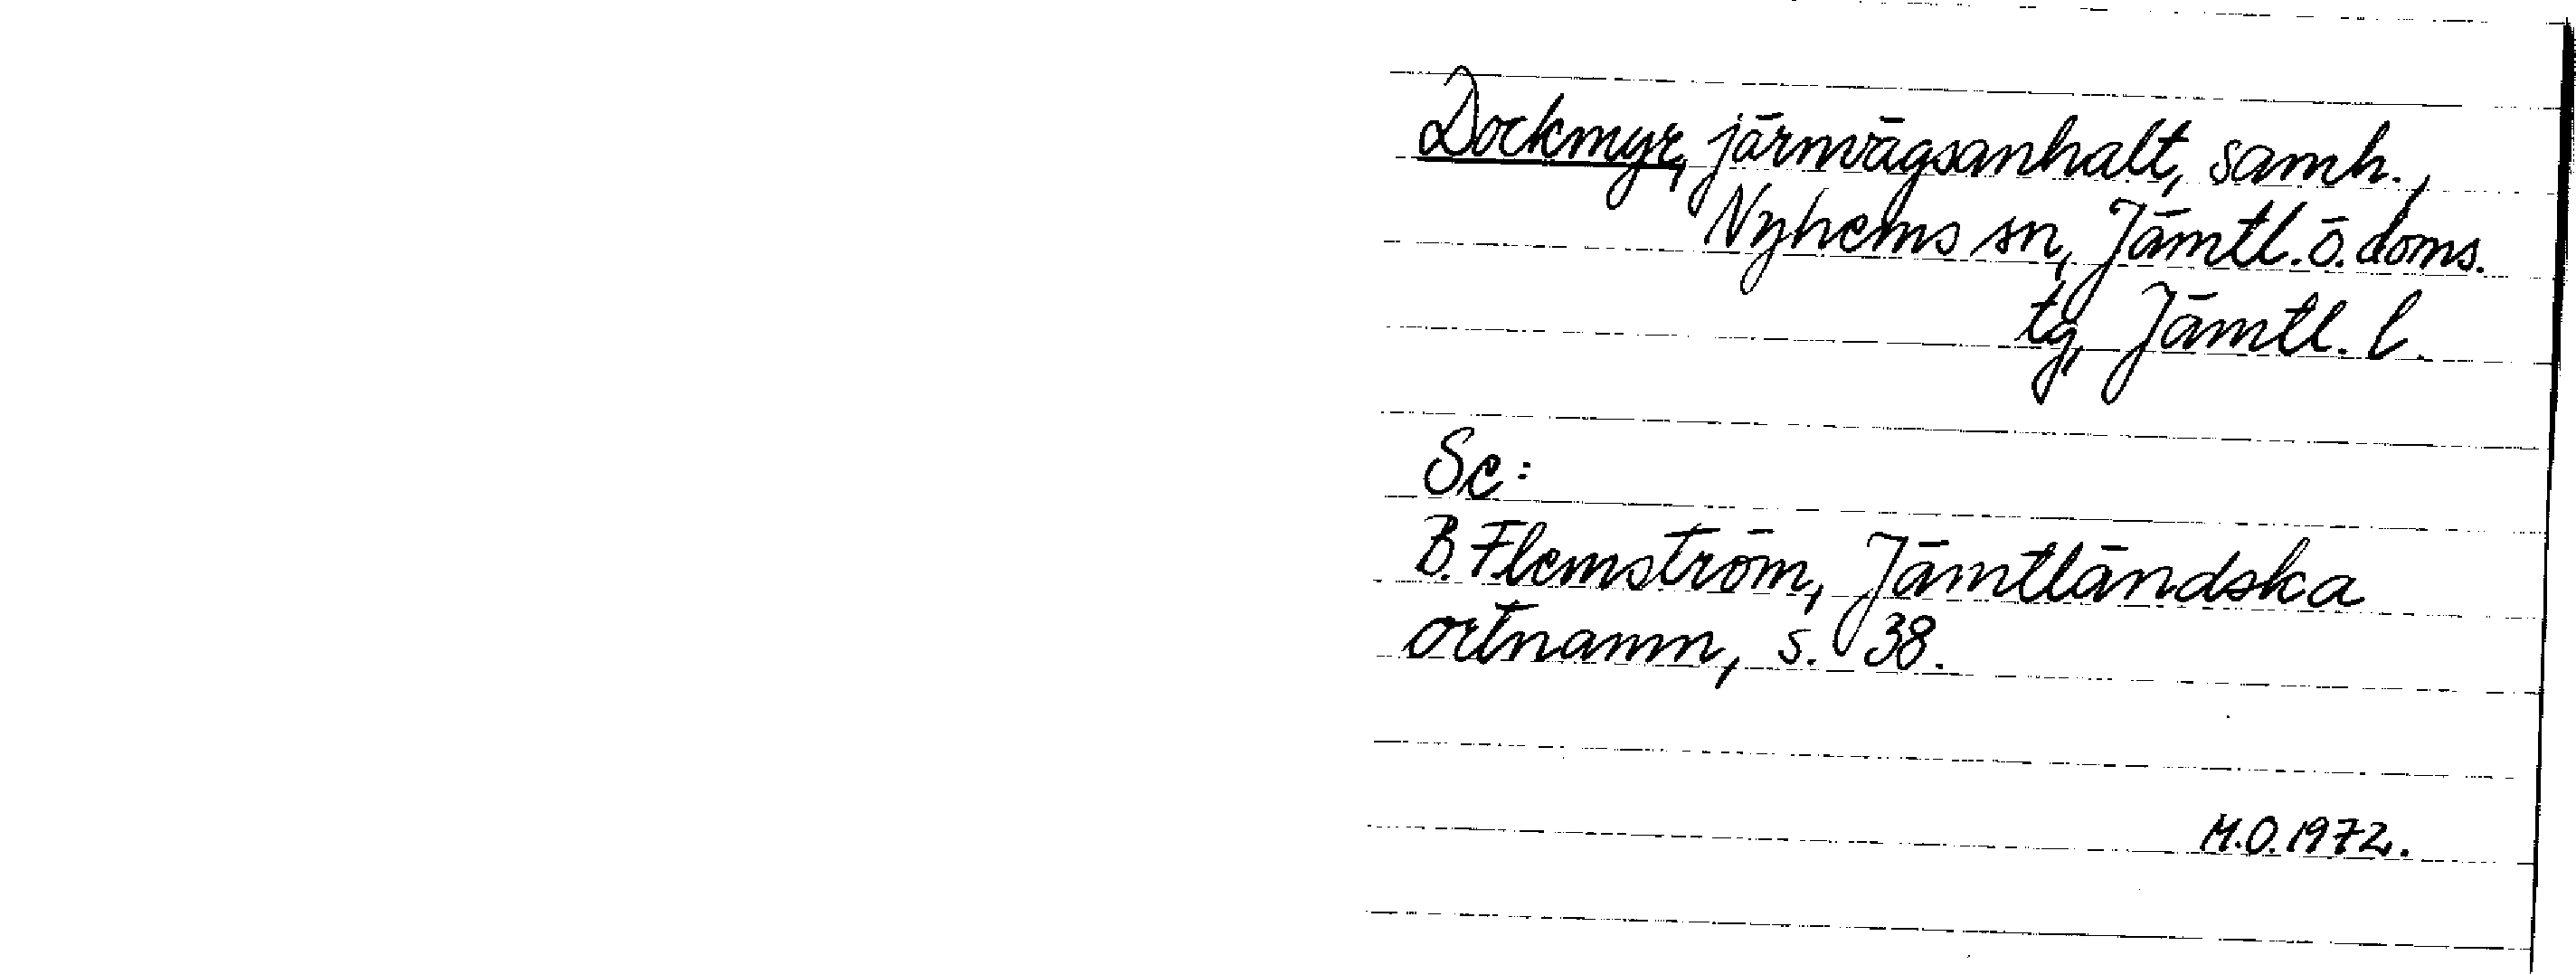 Dockmyr, järnvägsanhalt, samh.,
Nyhems sn, Jämtl. ö. doms.
tg, Jämtl. l.
Se:
B. Flemström, Jämtländska
ortnamn, s. 38.
M.O. 1972.